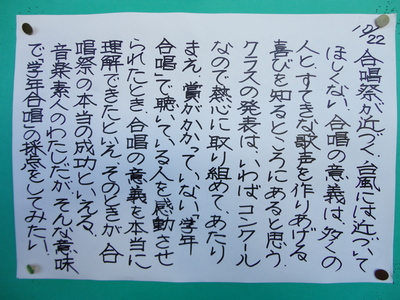 10/22
合唱祭が近づく、台風には近づいて
ほしくない。合唱の意義は、多くの
人と、すてきな歌声を作りあげる
喜びを知るところにあると思う。
クラスの発表は、いわばコンクール
なので熱心に取り組めて、あたり
まえ。賞がかかっていない「学年
合唱」で聴いている人を感動させ
られたとき、合唱の意義を本当に
理解できたといえ、そのときが、合
唱祭の本当の成功といえる。
音楽素人のわたしだが、そんな意味
で「学年合唱」の採点をしてみたい。